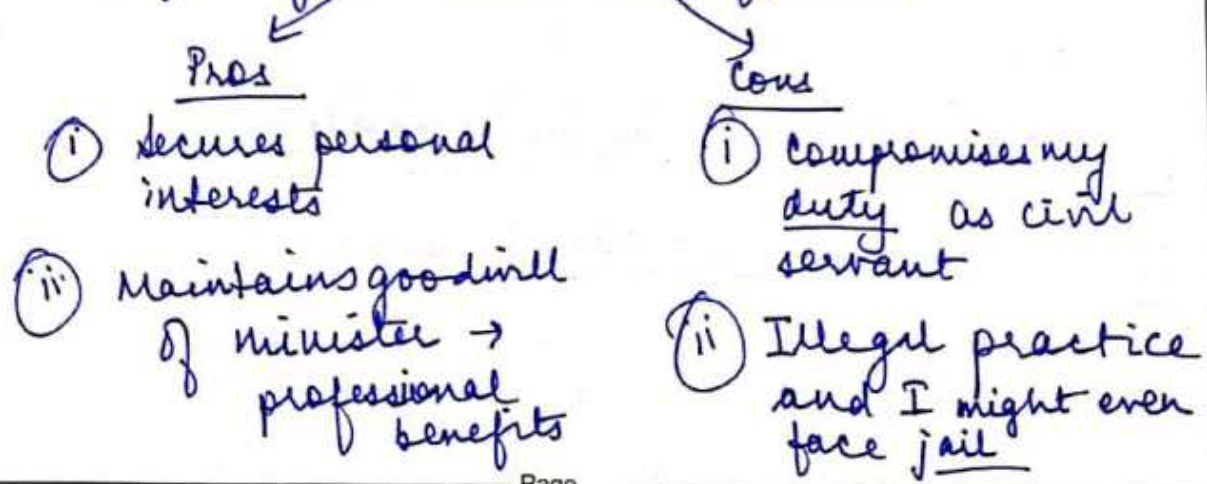 Pros
(i) Secures personal
interests
(ii) Maintains goodwill
of minister →
professional
benefits
Cons
(i) Compromises my
duty as civil
servant
(ii) Illegal practice
and I might even
face jail
Page